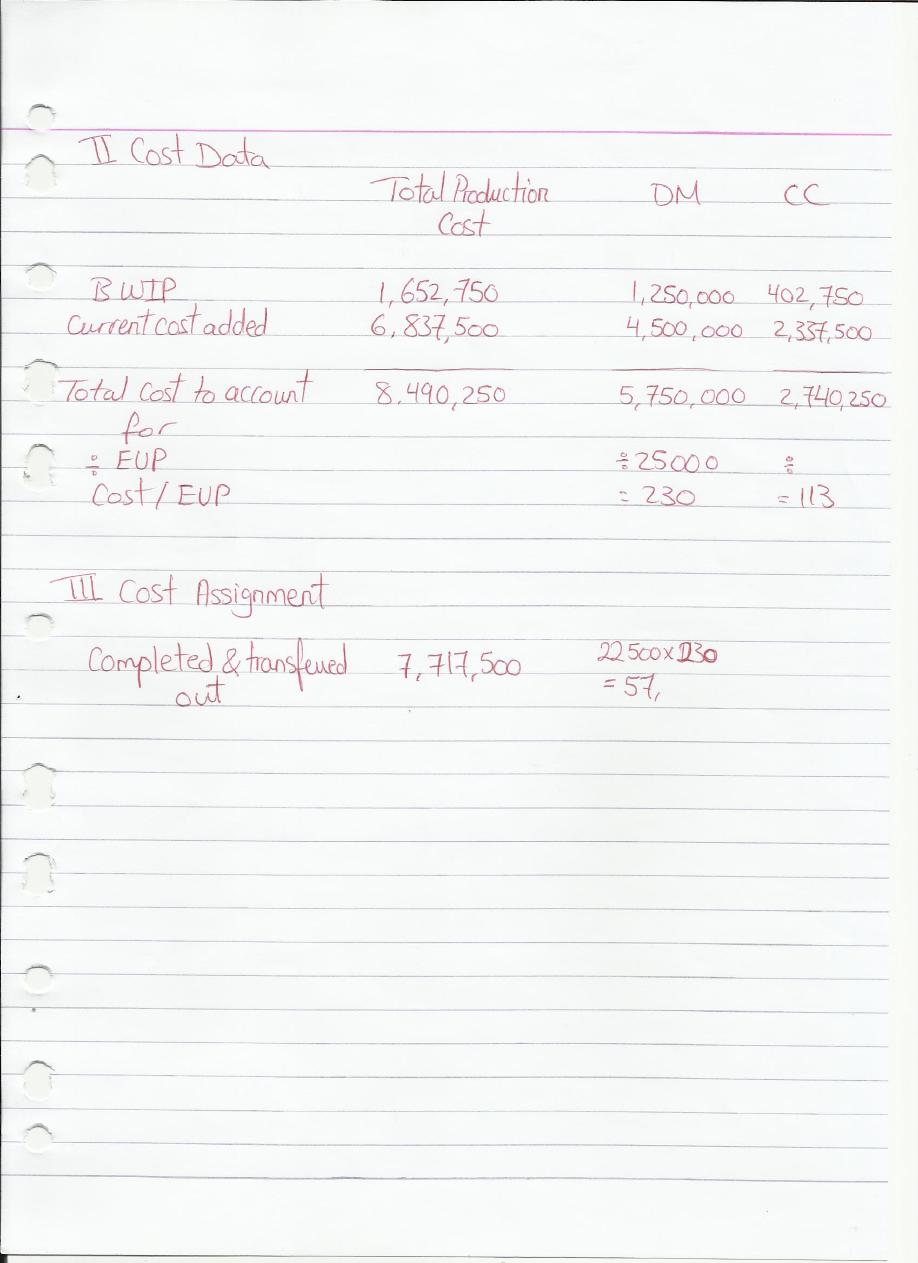 II Cost Data
Total Production DM CC
Cost
BWIP 1,652,750 1,250,000 402,750
Current cost added 6,837,500 4,500,000 2,337,500
Total cost to account 8.490,250 5,750,000 2,740,250
for
÷ EUP ÷25000 ÷
Cost/EUP = 230 = 113
III Cost Assignment
Completed & transferred 7,717,500 22500x230
out = 57,